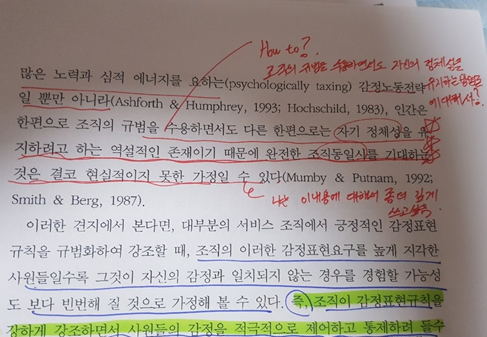 How to?
조직의 규범을 수용하면서도 자신의 정체성을
유지하는 방법
에 대해서.
많은 노력과 심적 에너지를 요하는(psychologically taxing) 감정노동전략
일 뿐만 아니라(Ashforth & Humphrey, 1993; Hochschild, 1983), 인간은
한편으로 조직의 규범을 수용하면서도 다른 한편으로는 자기 정체성을 유
지하려고 하는 역설적인 존재이기 때문에 완전한 조직동일시를 기대하는
것은 결코 현실적이지 못한 가정일 수 있다(Mumby & Putnam, 1992;
Smith & Berg, 1987).
나는 이 내용에 대해서 좀 더 깊게
쓰고 싶음.
이러한 견지에서 본다면, 대부분의 서비스 조직에서 긍정적인 감정표현
규칙을 규범화하여 강조할 때, 조직의 이러한 감정표현요구를 높게 지각한
사원들일수록 그것이 자신의 감정과 일치되지 않는 경우를 경험할 가능성
도 보다 빈번해 질 것으로 가정해 볼 수 있다. 즉, 조직이 감정표현규칙을
강하게 강조하면서 사원들의 감정을 적극적으로 제어하고 통제하려 들수